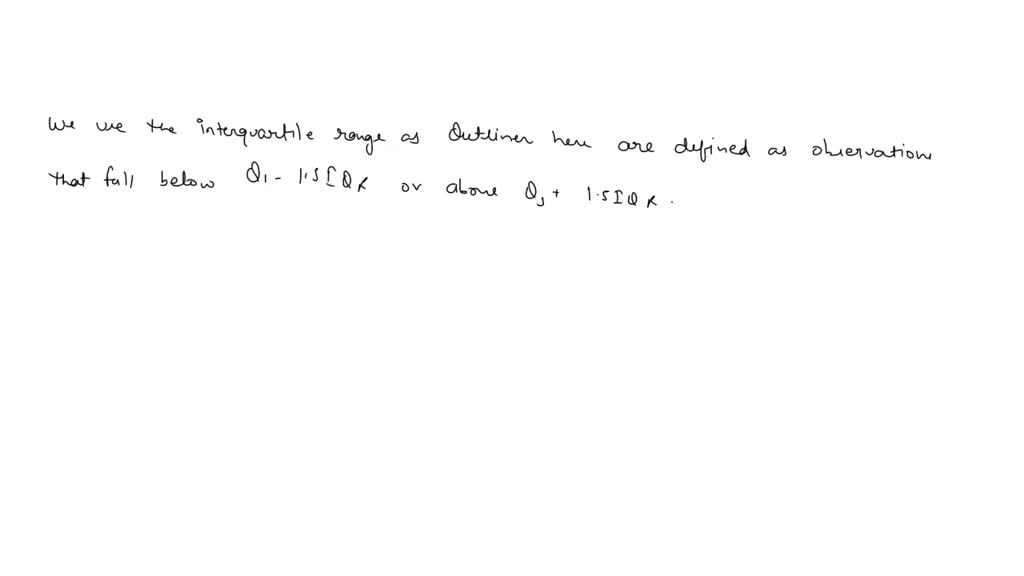 We use the interquartile range as Outliner here are defined as observation
that fall below Q1 - 1.5 IQR or above Q3 + 1.5 IQR.